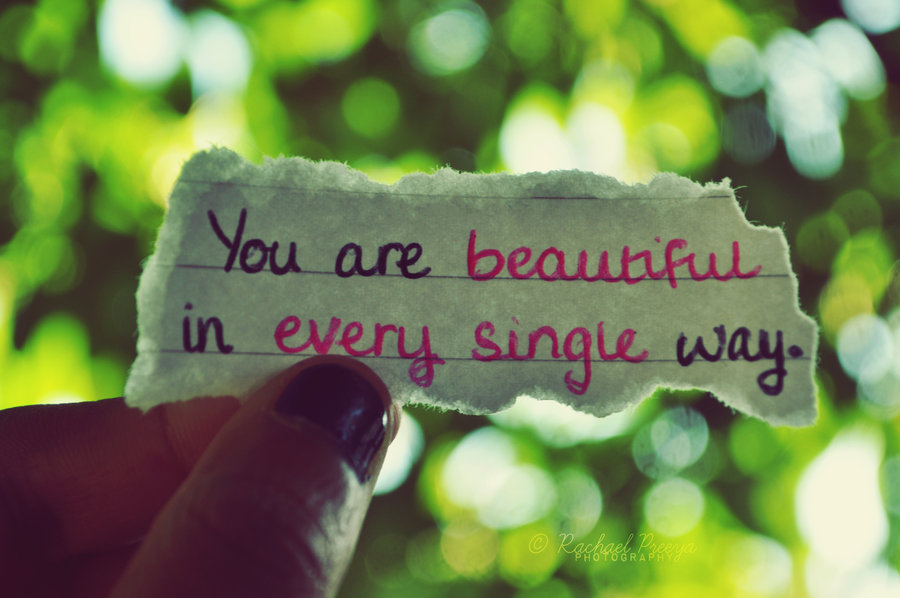 You are beautiful
in every single way.
© Rachael Preeya
PHOTOGRAPHY